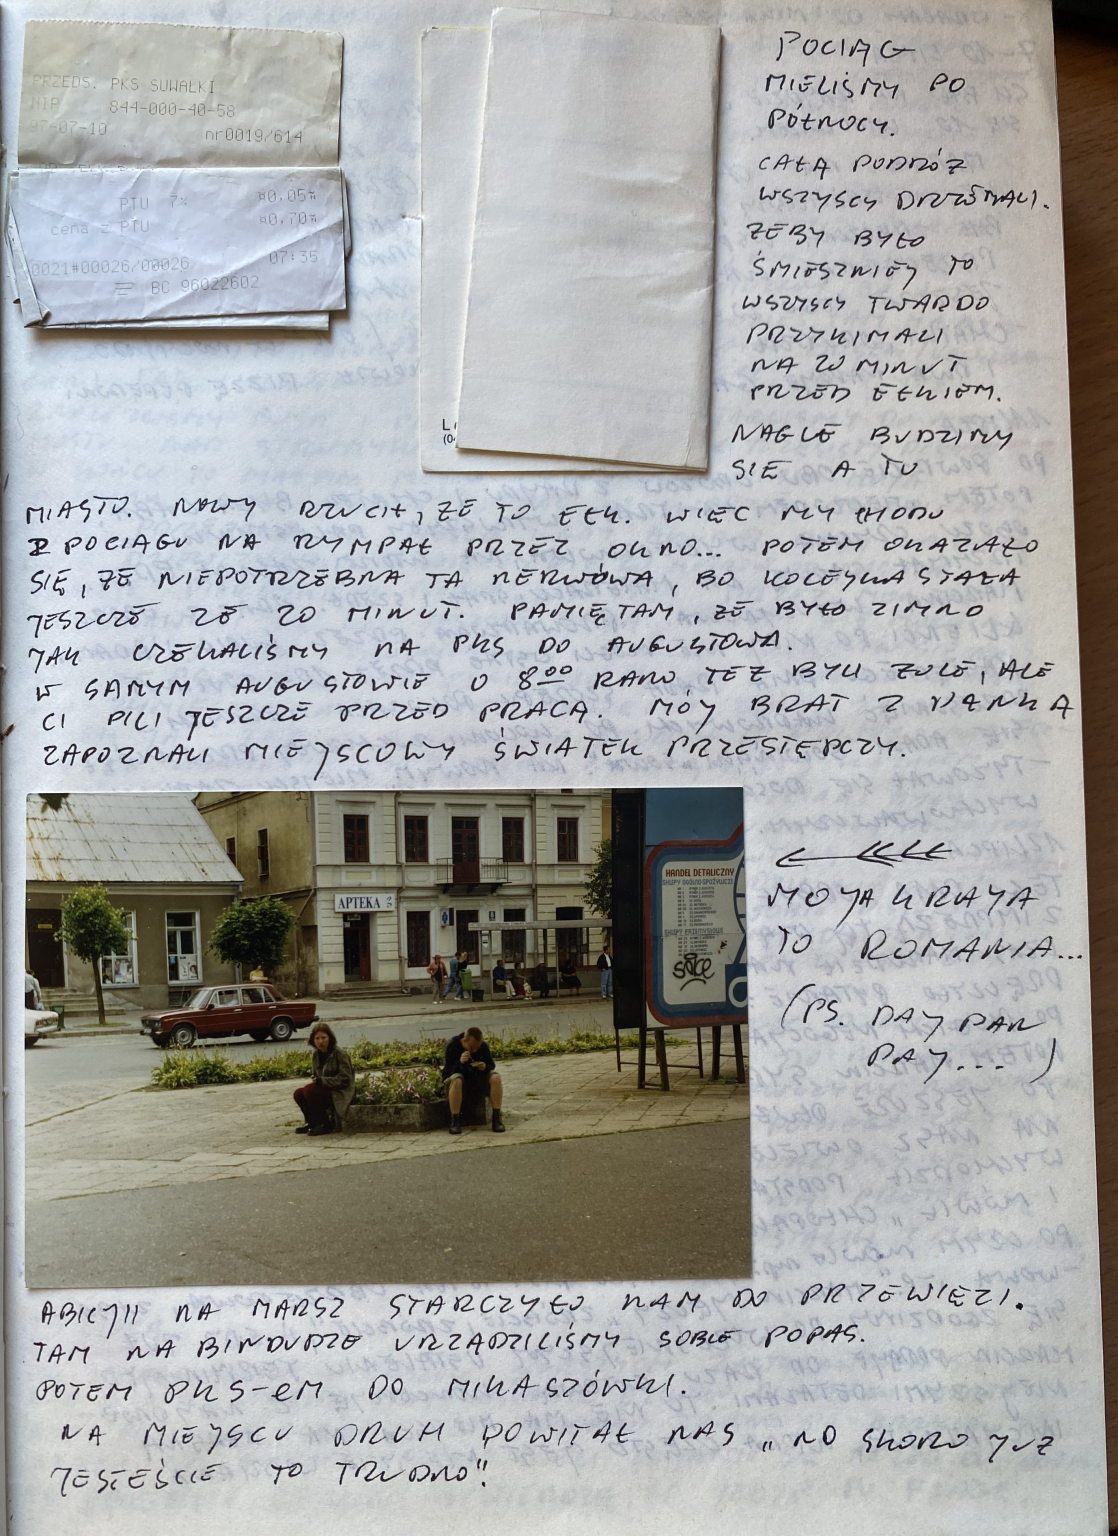 PRZEDS. PKS SUWAŁKI
NIP 844-000-40-58
97-07-10 nr0019/614
PTU 7% ¤0,05¤
cena z PTU ¤0,70¤
0021#00026/00026 07:35
BC 96022602
POCIĄG
MIELIŚMY PO
PÓŁNOCY.
CAŁĄ PODRÓŻ
WSZYSCY DRZEMALI.
ŻEBY BYŁO
ŚMIESZNIEJ TO
WSZYSCY TWARDO
PRZYKIMALI
NA 20 MINUT
PRZED EŁKIEM.
NAGLE BUDZIMY
SIĘ A TU
MIASTO. NOWY RZUCIŁ, ŻE TO EŁK. WIĘC MY CHODU
Z POCIĄGU NA RYMPAŁ PRZEZ OKNO... POTEM OKAZAŁO
SIĘ, ŻE NIEPOTRZEBNA TA NERWÓWA, BO KOLEJKA STAŁA
JESZCZE ZE 20 MINUT. PAMIĘTAM, ŻE BYŁO ZIMNO
JAK CZEKALIŚMY NA PKS DO AUGUSTOWA.
W SAMYM AUGUSTOWIE O 8⁰⁰ RANO TEŻ BYLI ŻULE, ALE
CI PILI JESZCZE PRZED PRACĄ. MÓJ BRAT Z
ZAPOZNALI MIEJSCOWY ŚWIATEK PRZESTĘPCZY.
APTEKA
HANDEL DETALICZNY
SKLEPY OGÓLNO-SPOŻYWCZE
SKLEPY PRZEMYSŁOWE
MOJA KRAJA
TO ROMANIA...
(PS. DAJ PAN
PAJ... )
ABICJII NA MARSZ STARCZYŁO NAM DO PRZEWIĘZI.
TAM NA BINDUDZE URZĄDZILIŚMY SOBIE POPAS.
POTEM PKS-eM DO MIKASZÓWKI.
NA MIEJSCU DRUH POWITAŁ NAS „NO SKORO JUŻ
JESTEŚCIE TO TRUDNO".